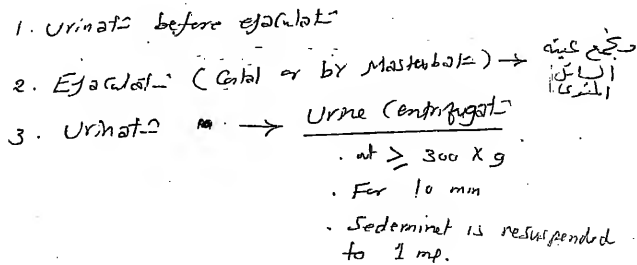 1. Urinat= before ejaculat=
2. Ejaculat= (Coital or by Masterbat=) → ونجمع عينه السائل المنوى
3. Urinat= → Urine Centrifugat=
. at ≥ 300 X g
. For 10 min
. Sedeminet is resuspended
to 1 ml.